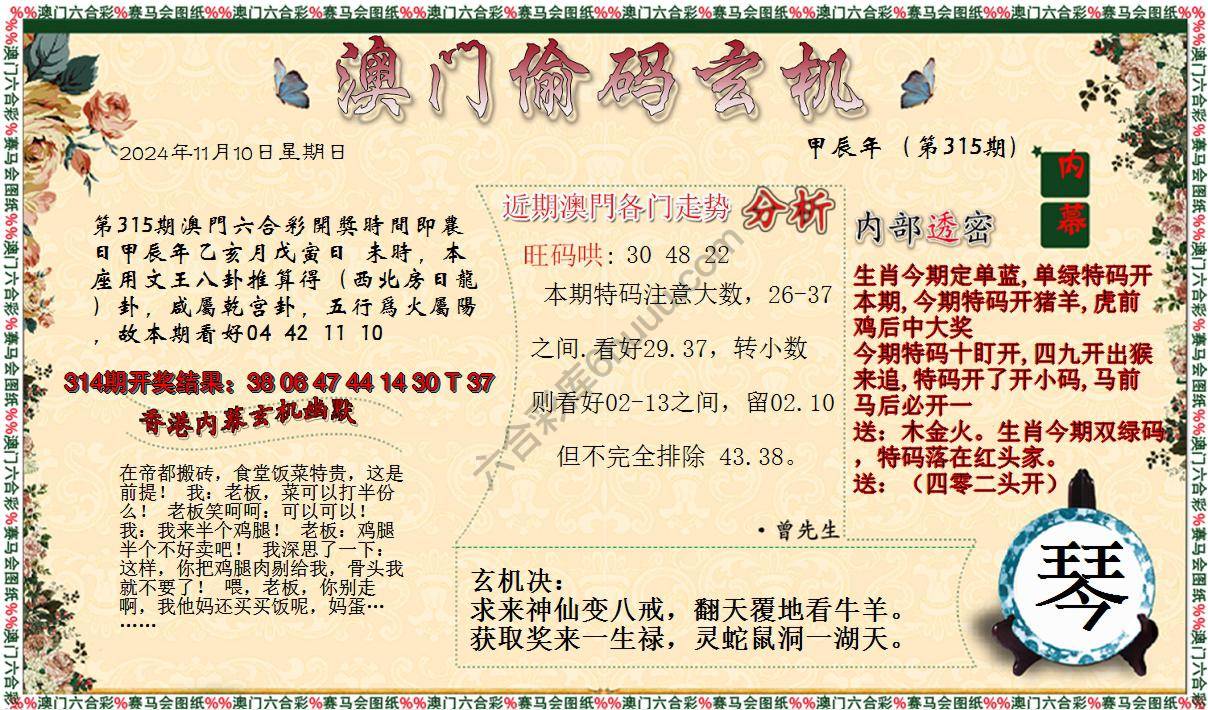 %%澳门六合彩%赛马会图纸%%澳门六合彩%赛马会图纸%%澳门六合彩%赛马会图纸%%澳门六合彩%赛马会图纸%%澳门六合彩%赛马会图纸%%澳门六合彩%赛马会图纸%%
澳门偷码玄机
2024年11月10日星期日
甲辰年（第315期）
内幕
第315期澳門六合彩開獎時間即農
日甲辰年乙亥月戊寅日 未時，本
座用文王八卦推算得（西北房日龍
）卦，咸屬乾宫卦，五行爲火屬陽
，故本期看好04 42 11 10
314期开奖结果：38 06 47 44 14 30 T 37
香港内幕玄机幽默
在帝都搬砖，食堂饭菜特贵，这是
前提！ 我：老板，菜可以打半份
么！ 老板笑呵呵：可以可以！
我：我来半个鸡腿！ 老板：鸡腿
半个不好卖吧！ 我深思了一下：
这样，你把鸡腿肉剔给我，骨头我
就不要了！ 喂，老板，你别走
啊，我他妈还买买饭呢，妈蛋…
……
近期澳門各门走势 分析
旺码哄: 30 48 22
本期特码注意大数，26-37
之间.看好29.37，转小数
则看好02-13之间，留02.10
但不完全排除 43.38。
·曾先生
内部透密
生肖今期定单蓝,单绿特码开
本期,今期特码开猪羊,虎前
鸡后中大奖
今期特码十盯开,四九开出猴
来追,特码开了开小码,马前
马后必开一
送：木金火。生肖今期双绿码
，特码落在红头家。
送：（四零二头开）
玄机决：
求来神仙变八戒，翻天覆地看牛羊。
获取奖来一生禄，灵蛇鼠洞一湖天。
琴
%%澳门六合彩%赛马会图纸%%澳门六合彩%赛马会图纸%%澳门六合彩%赛马会图纸%%澳门六合彩%赛马会图纸%%澳门六合彩%赛马会图纸%%澳门六合彩%赛马会图纸%%